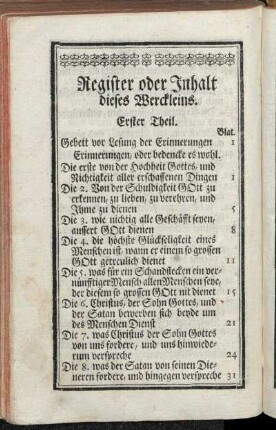 Register oder Inhalt
dieses Werckleins.
Erster Theil.
Blat.
Gebett vor Lesung der Erinnerungen 1
Erinnerungen, oder bedencke es wohl.
Die erste von der Hochheit Gottes, und
Nichtigkeit aller erschaffenen Dingen 1
Die 2. Von der Schuldigkeit GOtt zu
erkennen, zu lieben, zu verehren, und
Ihme zu dienen 5
Die 3. wie nichtig alle Geschäfft seyen,
aussert GOtt dienen 8
Die 4. die höchste Glückseligkeit eines
Menschen ist, wann er einem so grossen
GOtt getreulich dienet 11
Die 5. was für ein Schandflecken ein ver-
nünfftiger Mensch allen Menschen seye,
der diesem so grossen GOtt nit dienet 15
Die 6. Christus, der Sohn Gottes, und
der 8. Satan bewerben sich beyde um
des Menschen Dienst 21
Die 7. was Christus der Sohn Gottes
von uns fordere, und uns hinwiede-
rum verspreche 24
Die 8. was der Satan von seinen Die-
neren fordere, und hingegen verspreche 31